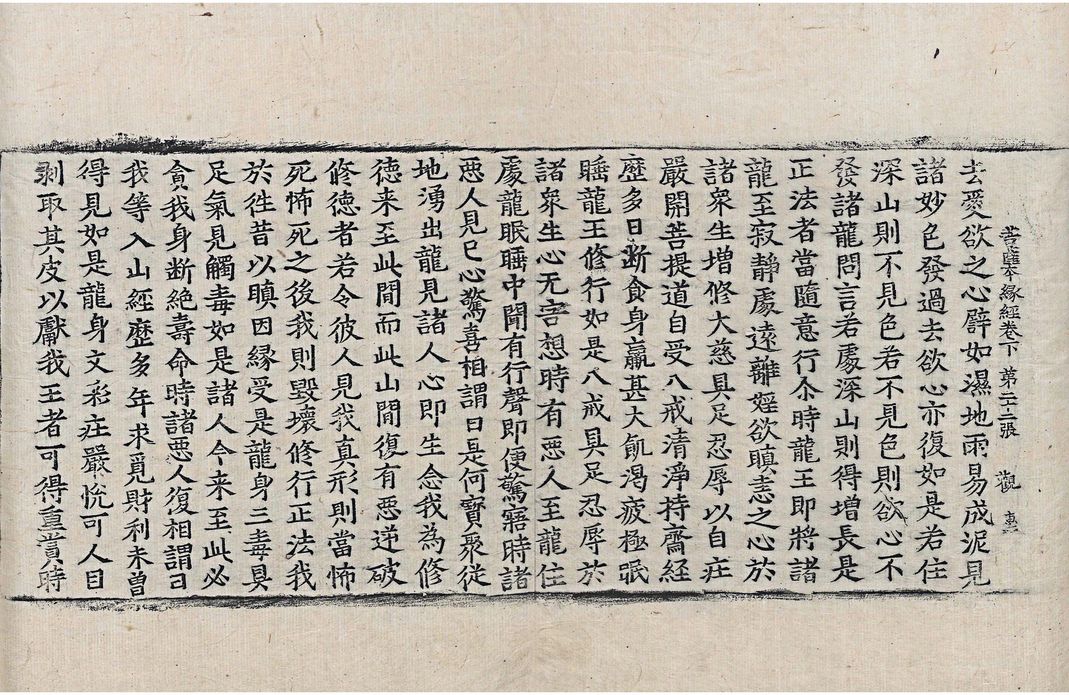 菩薩本緣經卷下 第二十二張 觀
去愛欲之心譬如濕地雨易成泥見
諸妙色發過去欲心亦復如是若住
深山則不見色若不見色則欲心不
發諸龍問言若處深山則得增長是
正法者當隨意行尒時龍王即將諸
龍至寂靜處遠離婬欲瞋恚之心於
諸衆生增修大慈具足忍辱以自庄
嚴開菩提道自受八戒清淨持齋經
歷多日斷食身羸甚大飢渴疲極眠
睡龍王修行如是八戒具足忍辱於
諸衆生心无害想時有惡人至龍住
處龍眠睡中聞有行聲即便驚寤時諸
惡人見已心驚喜相謂曰是何寶聚從
地湧出龍見諸人心即生念我為修
德来至此間而此山間復有惡逆破
修德者若令彼人見我真形則當怖
死怖死之後我則毀壞修行正法我
於往昔以瞋因緣受是龍身三毒具
足氣見觸毒如是諸人今来至此必
貪我身断絕壽命時諸惡人復相謂曰
我等入山經歷多年求覓財利未曾
得見如是龍身文彩庄嚴恱可人目
剥取其皮以獻我王者可得重賞時